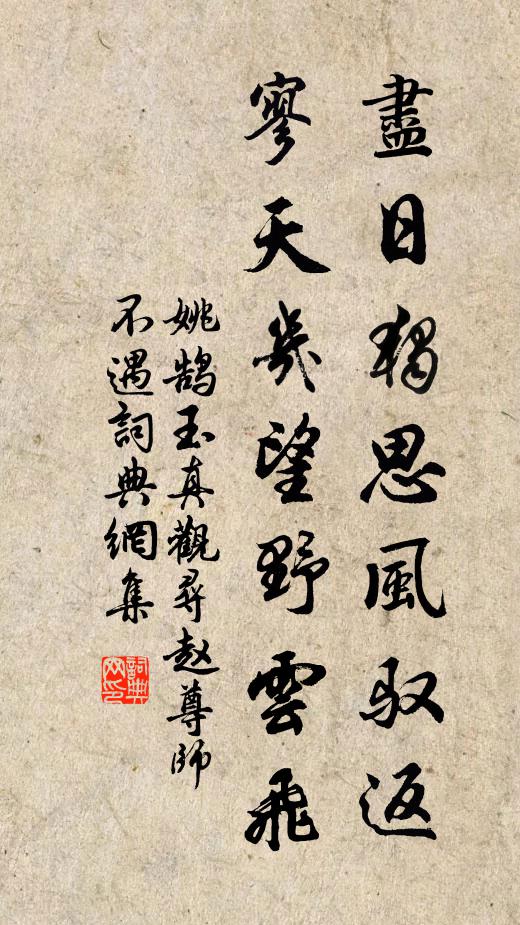 盡日獨思風馭返
寥天幾望野雲飛
姚鵠玉真觀尋赵尊師
不遇詞典網集
詞典网印